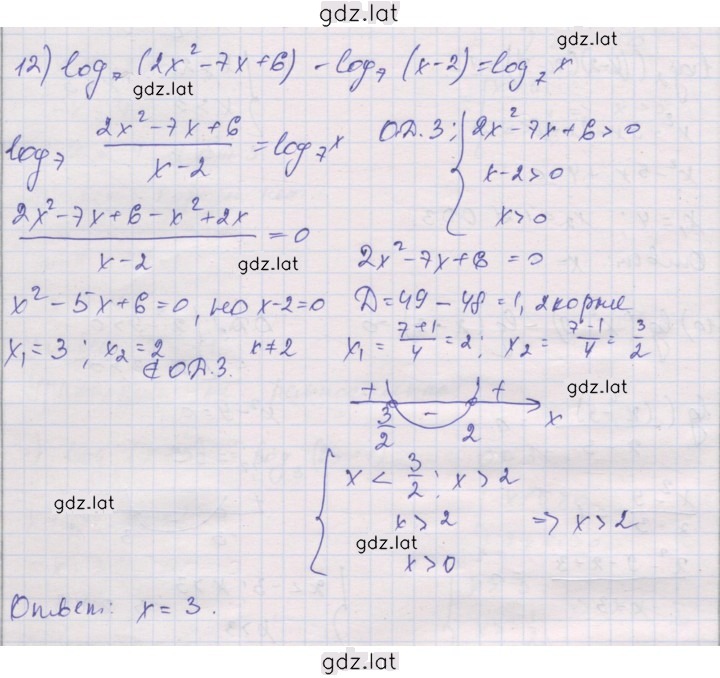 gdz.lat
12) log₇ (2x² - 7x + 6) - log₇ (x-2) = log₇ x
gdz.lat
gdz.lat
log₇ (2x² - 7x + 6)/(x - 2) = log₇ x
О.Д.З; { 2x² - 7x + 6 > 0
x - 2 > 0
x > 0
(2x² - 7x + 6 - x² + 2x)/(x - 2) = 0
gdz.lat
2x² - 7x + 6 = 0
x² - 5x + 6 = 0, но x - 2 = 0
D = 49 - 48 = 1, 2 корня
x₁ = 3; x₂ = 2 x ≠ 2
∉ О.Д.З.
x₁ = (7+1)/4 = 2; x₂ = (7-1)/4 = 3/2
gdz.lat
+ - + x
3/2 2
{ x < 3/2; x > 2
gdz.lat
x > 2 => x > 2
gdz.lat
x > 0
Ответ: x = 3.
gdz.lat